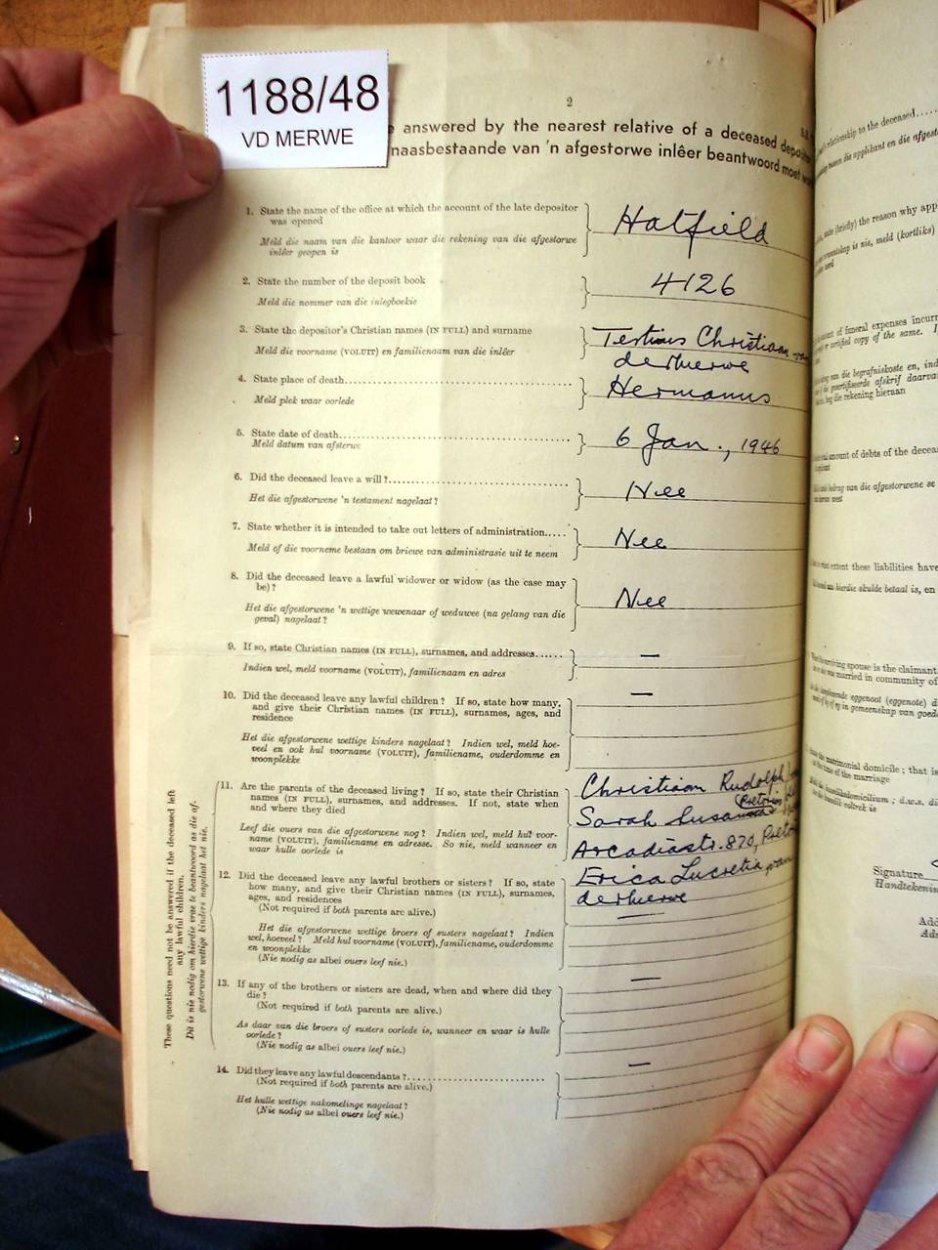 1188/48
VD MERWE
2
answered by the nearest relative of a deceased
naasbestaande van 'n afgestorwe inlêer beantwoord moet
1. State the name of the office at which the account of the late depositor
was opened
Meld die naam van die kantoor waar die rekening van die afgestorwe
inlêer geopen is
Hatfield
2. State the number of the deposit book
Meld die nommer van die inlegboekie
4126
3. State the depositor's Christian names (IN FULL) and surname
Meld die voorname (VOLUIT) en familienaam van die inlêer
Tertius Christiaan van
der Merwe
4. State place of death
Meld plek waar oorlede
Hermanus
5. State date of death
Meld datum van afsterwe
6 Jan., 1946
6. Did the deceased leave a will?
Het die afgestorwene 'n testament nagelaat?
Nee
7. State whether it is intended to take out letters of administration
Meld of die voorneme bestaan om briewe van administrasie uit te neem
Nee
8. Did the deceased leave a lawful widower or widow (as the case may
be)?
Het die afgestorwene 'n wettige wewenaar of weduwee (na gelang van die
geval) nagelaat?
Nee
9. If so, state Christian names (IN FULL), surnames, and addresses
Indien wel, meld voorname (VOLUIT), familienaam en adres
—
10. Did the deceased leave any lawful children? If so, state how many,
and give their Christian names (IN FULL), surnames, ages, and
residence
Het die afgestorwene wettige kinders nagelaat? Indien wel, meld hoe-
veel en ook hul voorname (VOLUIT), familiename, ouderdomme en
woonplekke
—
These questions need not be answered if the deceased left
any lawful children.
Dit is nie nodig om hierdie vrae te beantwoord as die af-
gestorwene wettige kinders nagelaat het nie.
11. Are the parents of the deceased living? If so, state their Christian
names (IN FULL), surnames, and addresses. If not, state when
and where they died
Leef die ouers van die afgestorwene nog? Indien wel, meld hul voor-
name (VOLUIT), familiename en adresse. So nie, meld wanneer en
waar hulle oorlede is
Christiaan Rudolph
Sarah Susanna
Arcadiastr. 870,
12. Did the deceased leave any lawful brothers or sisters? If so, state
how many, and give their Christian names (IN FULL), surnames,
ages, and residences
(Not required if both parents are alive.)
Het die afgestorwene wettige broers of susters nagelaat? Indien
wel, hoeveel? Meld hul voorname (VOLUIT), familiename, ouderdomme
en woonplekke
(Nie nodig as albei ouers leef nie.)
Erica Lucretia van
der Merwe
—
13. If any of the brothers or sisters are dead, when and where did they
die?
(Not required if both parents are alive.)
As daar van die broers of susters oorlede is, wanneer en waar is hulle
oorlede?
(Nie nodig as albei ouers leef nie.)
—
14. Did they leave any lawful descendants?
(Not required if both parents are alive.)
Het hulle wettige nakomelinge nagelaat?
(Nie nodig as albei ouers leef nie.)
—
relationship to the deceased
(briefly) the reason why
is nie, meld (kortliks)
of funeral expenses
certified copy of the same.
van die begrafniskoste en,
afskrif
die rekening hieraan
amount of debts of the
bedrag van die afgestorwene se
extent these liabilities have
hierdie skulde betaal is, en
spouse is the claimant
was married in community of
eggenoot (eggenote)
in gemeenskap van
matrimonial domicile; that is
time of the marriage
Signature